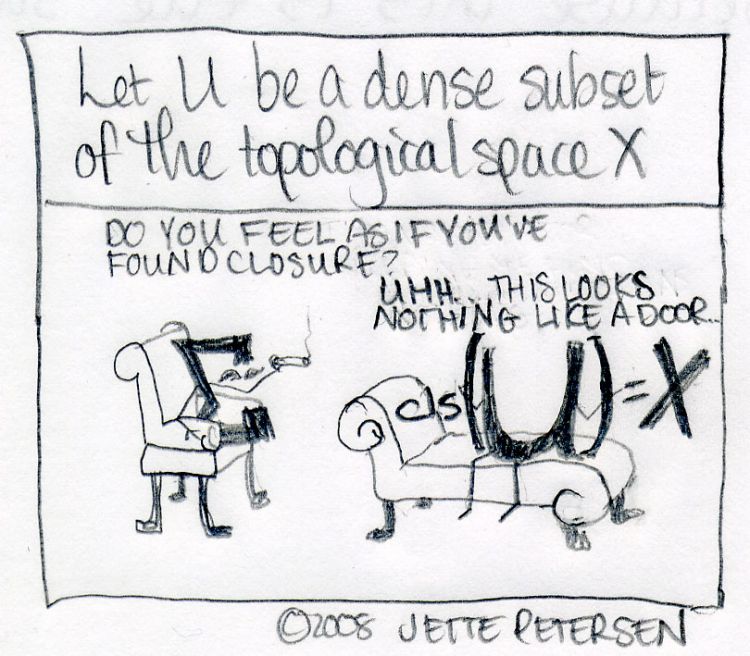 Let U be a dense subset
of the topological space X
DO YOU FEEL AS IF YOU'VE
FOUND CLOSURE?
UHH... THIS LOOKS
NOTHING LIKE A DOOR...
cls(U)=X
©2008 JETTE PETERSEN